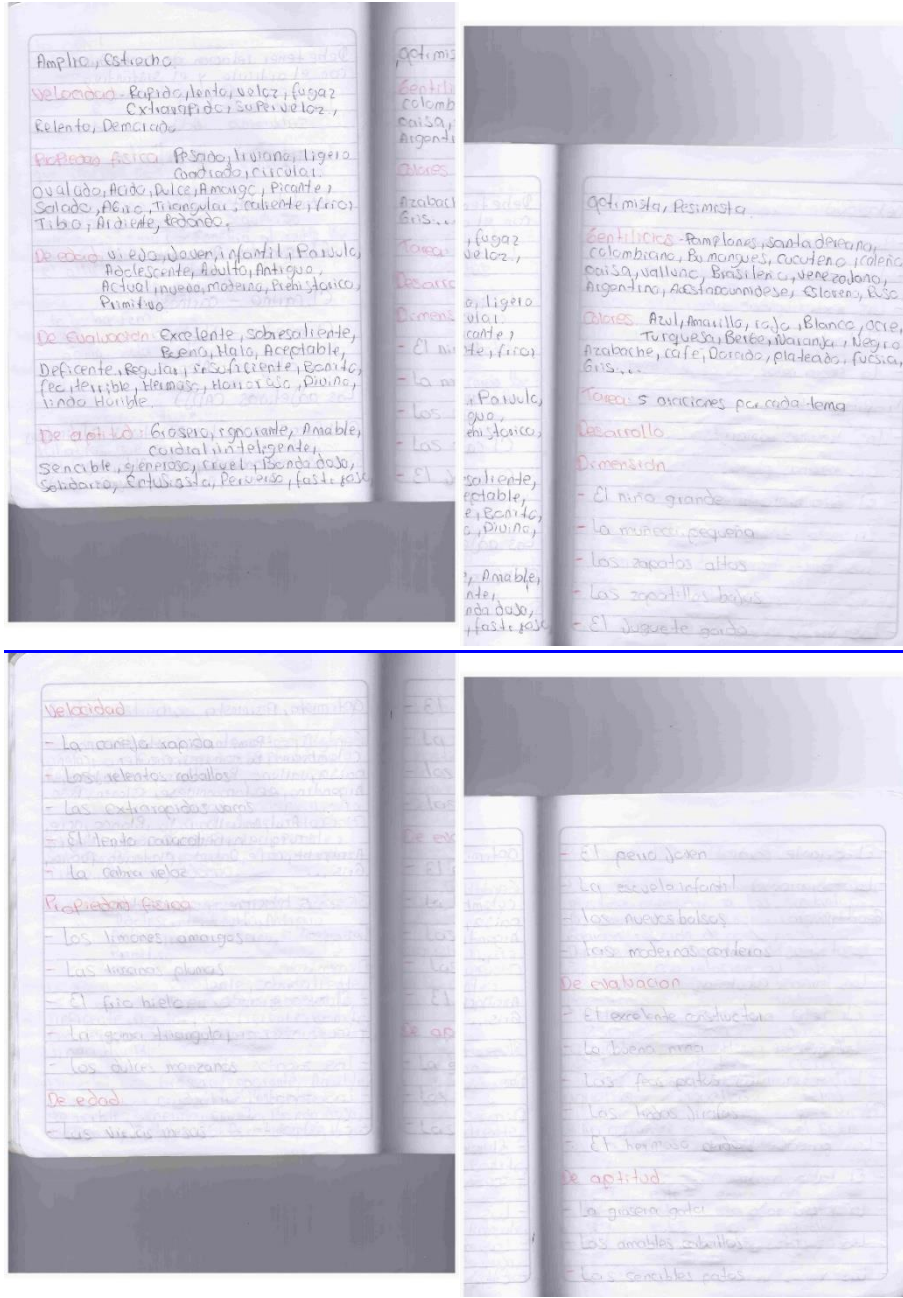 Amplio, Estrecho
Velocidad - Rapido, lento, veloz, fugaz
Extrarapido, super veloz,
Relento, Demciado
Propiedad fisica Pesado, liviano, ligero
Cuadrado, circular
Ovalado, Acido, Dulce, Amargo, Picante,
Salado, Agrio, Triangular, caliente, frio,
Tibio, Ardiente, redondo.
De edad viejo, Joven, infantil, Parvulo,
Adolescente, Adulto, Antiguo,
Actual, nuevo, moderno, Prehistorico,
Primitivo
De Evaluacion Excelente, sobresaliente,
Bueno, Malo, Aceptable,
Deficente, Regular, insuficiente, Bonito,
feo, terrible, Hermoso, Horroroso, Divino,
lindo Horible.
De aptitud: Grosero, ignorante, Amable,
cordial, inteligente,
Sencible, generoso, cruel, Bonda doso,
Solidario, Entusiasta, Perverso,
optimista, Pesimesta
Gentilicios - Pamplones, santa dereano,
colombiano, Bumangues, cucuteno, caleño
paisa, valluno, Brasileño, venezolano,
Argentino, Esloveno, Ruso
Colores Azul, Amarillo, rojo, Blanco, ocre,
Turquesa, Beige, Naranja, Negro
Azabache, cafe, Dorado, plateado, fucsia,
Gris...
Tarea: 5 oraciones por cada tema
Desarrollo
Dimension
- El niño grande
- La muñeca pequeña
- Los zapatos altos
- Las zapatillas bajas
- El Juguete gordo
Velocidad
- La coneja rapida
- Los relentos caballos
- Las extrarapidas
- El lento caracol
- La cabra veloz
Propiedad fisica
- Los limones amargos
- Las livianas plumas
- El frio hielo
- La goma triangular
- Las dulces manzanas
De edad
- Las viejas
- El perro joven
- La escuela infantil
- Los nuevos bolsos
- Las modernas carteras
De evaluacion
- El excelente constructor
- La buena
- Los feos patos
- Las lindas
- El hermoso
De aptitud
- La grosera gata
- Los amables
- Los sencibles patos